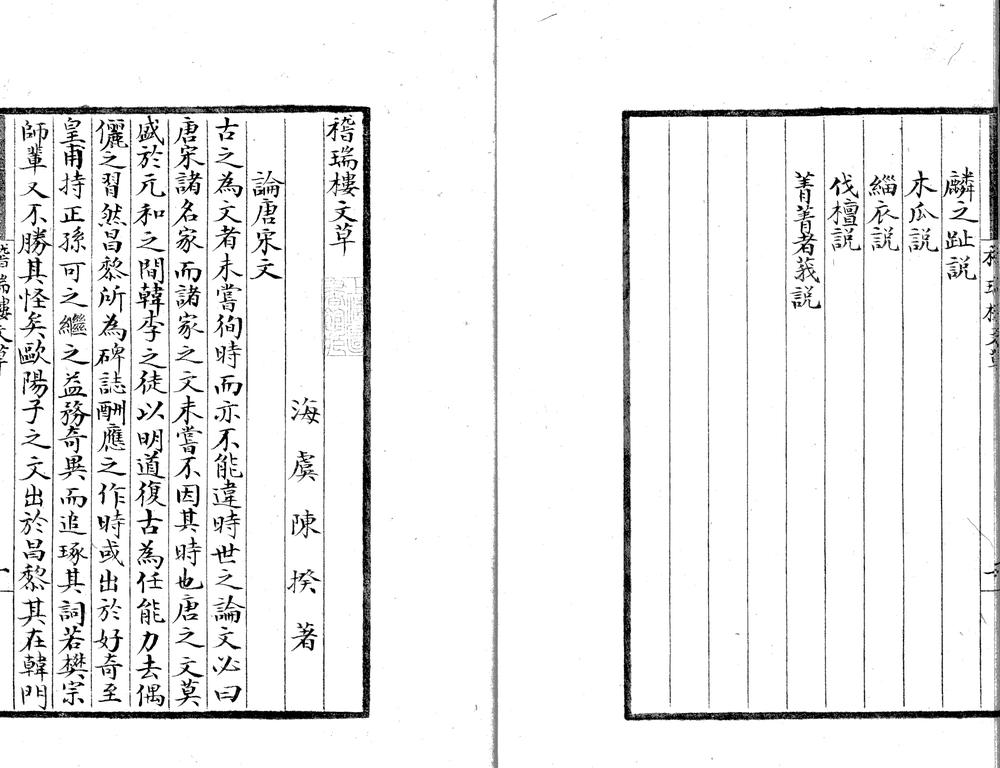 麟之趾説
木瓜説
緇衣説
伐檀説
菁菁者莪説
稽瑞樓文草
海虞陳揆著
論唐宋文
古之為文者未嘗徇時而亦不能違時世之論文必曰
唐宋諸名家而諸家之文未嘗不因其時也唐之文莫
盛於元和之間韓李之徒以明道復古為任能力去偶
儷之習然昌黎所為碑誌酬應之作時或出於好奇至
皇甫持正孫可之繼之益務奇異而追琢其詞若樊宗
師輩又不勝其怪矣歐陽子之文出於昌黎其在韓門
稽瑞樓文草